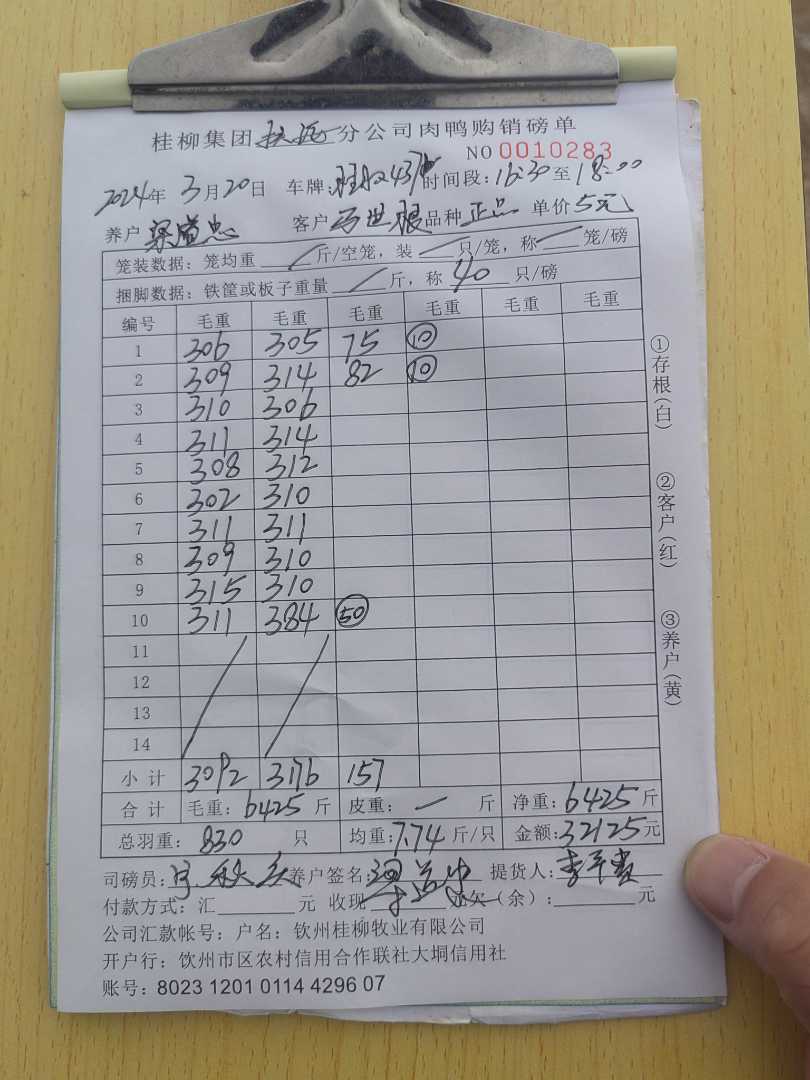 桂柳集团 分公司肉鸭购销磅单
NO 0010283
2024年 3月20日 车牌: 时间段:16:30至18:00
养户 客户 品种正品 单价5元
笼装数据:笼均重 / 斤/空笼,装 / 只/笼,称 / 笼/磅
捆脚数据:铁筐或板子重量 / 斤,称 40 只/磅
编号 毛重 毛重 毛重 毛重 毛重 毛重
1 306 305 75 ⑩
2 309 314 82 ⑩
3 310 306
4 311 314
5 308 312
6 302 310
7 311 311
8 309 310
9 315 310
10 311 384 ㊿
11
12
13
14
小计 3092 3176 157
合计 毛重:6425斤 皮重:— 斤 净重:6425斤
总羽重:830 只 均重:7.74斤/只 金额:32125元
司磅员: 养户签名: 提货人:
付款方式:汇 元 收现 欠(余): 元
公司汇款帐号:户名:钦州桂柳牧业有限公司
开户行:钦州市区农村信用合作联社大垌信用社
账号:8023 1201 0114 4296 07
①存根(白)
②客户(红)
③养户(黄)